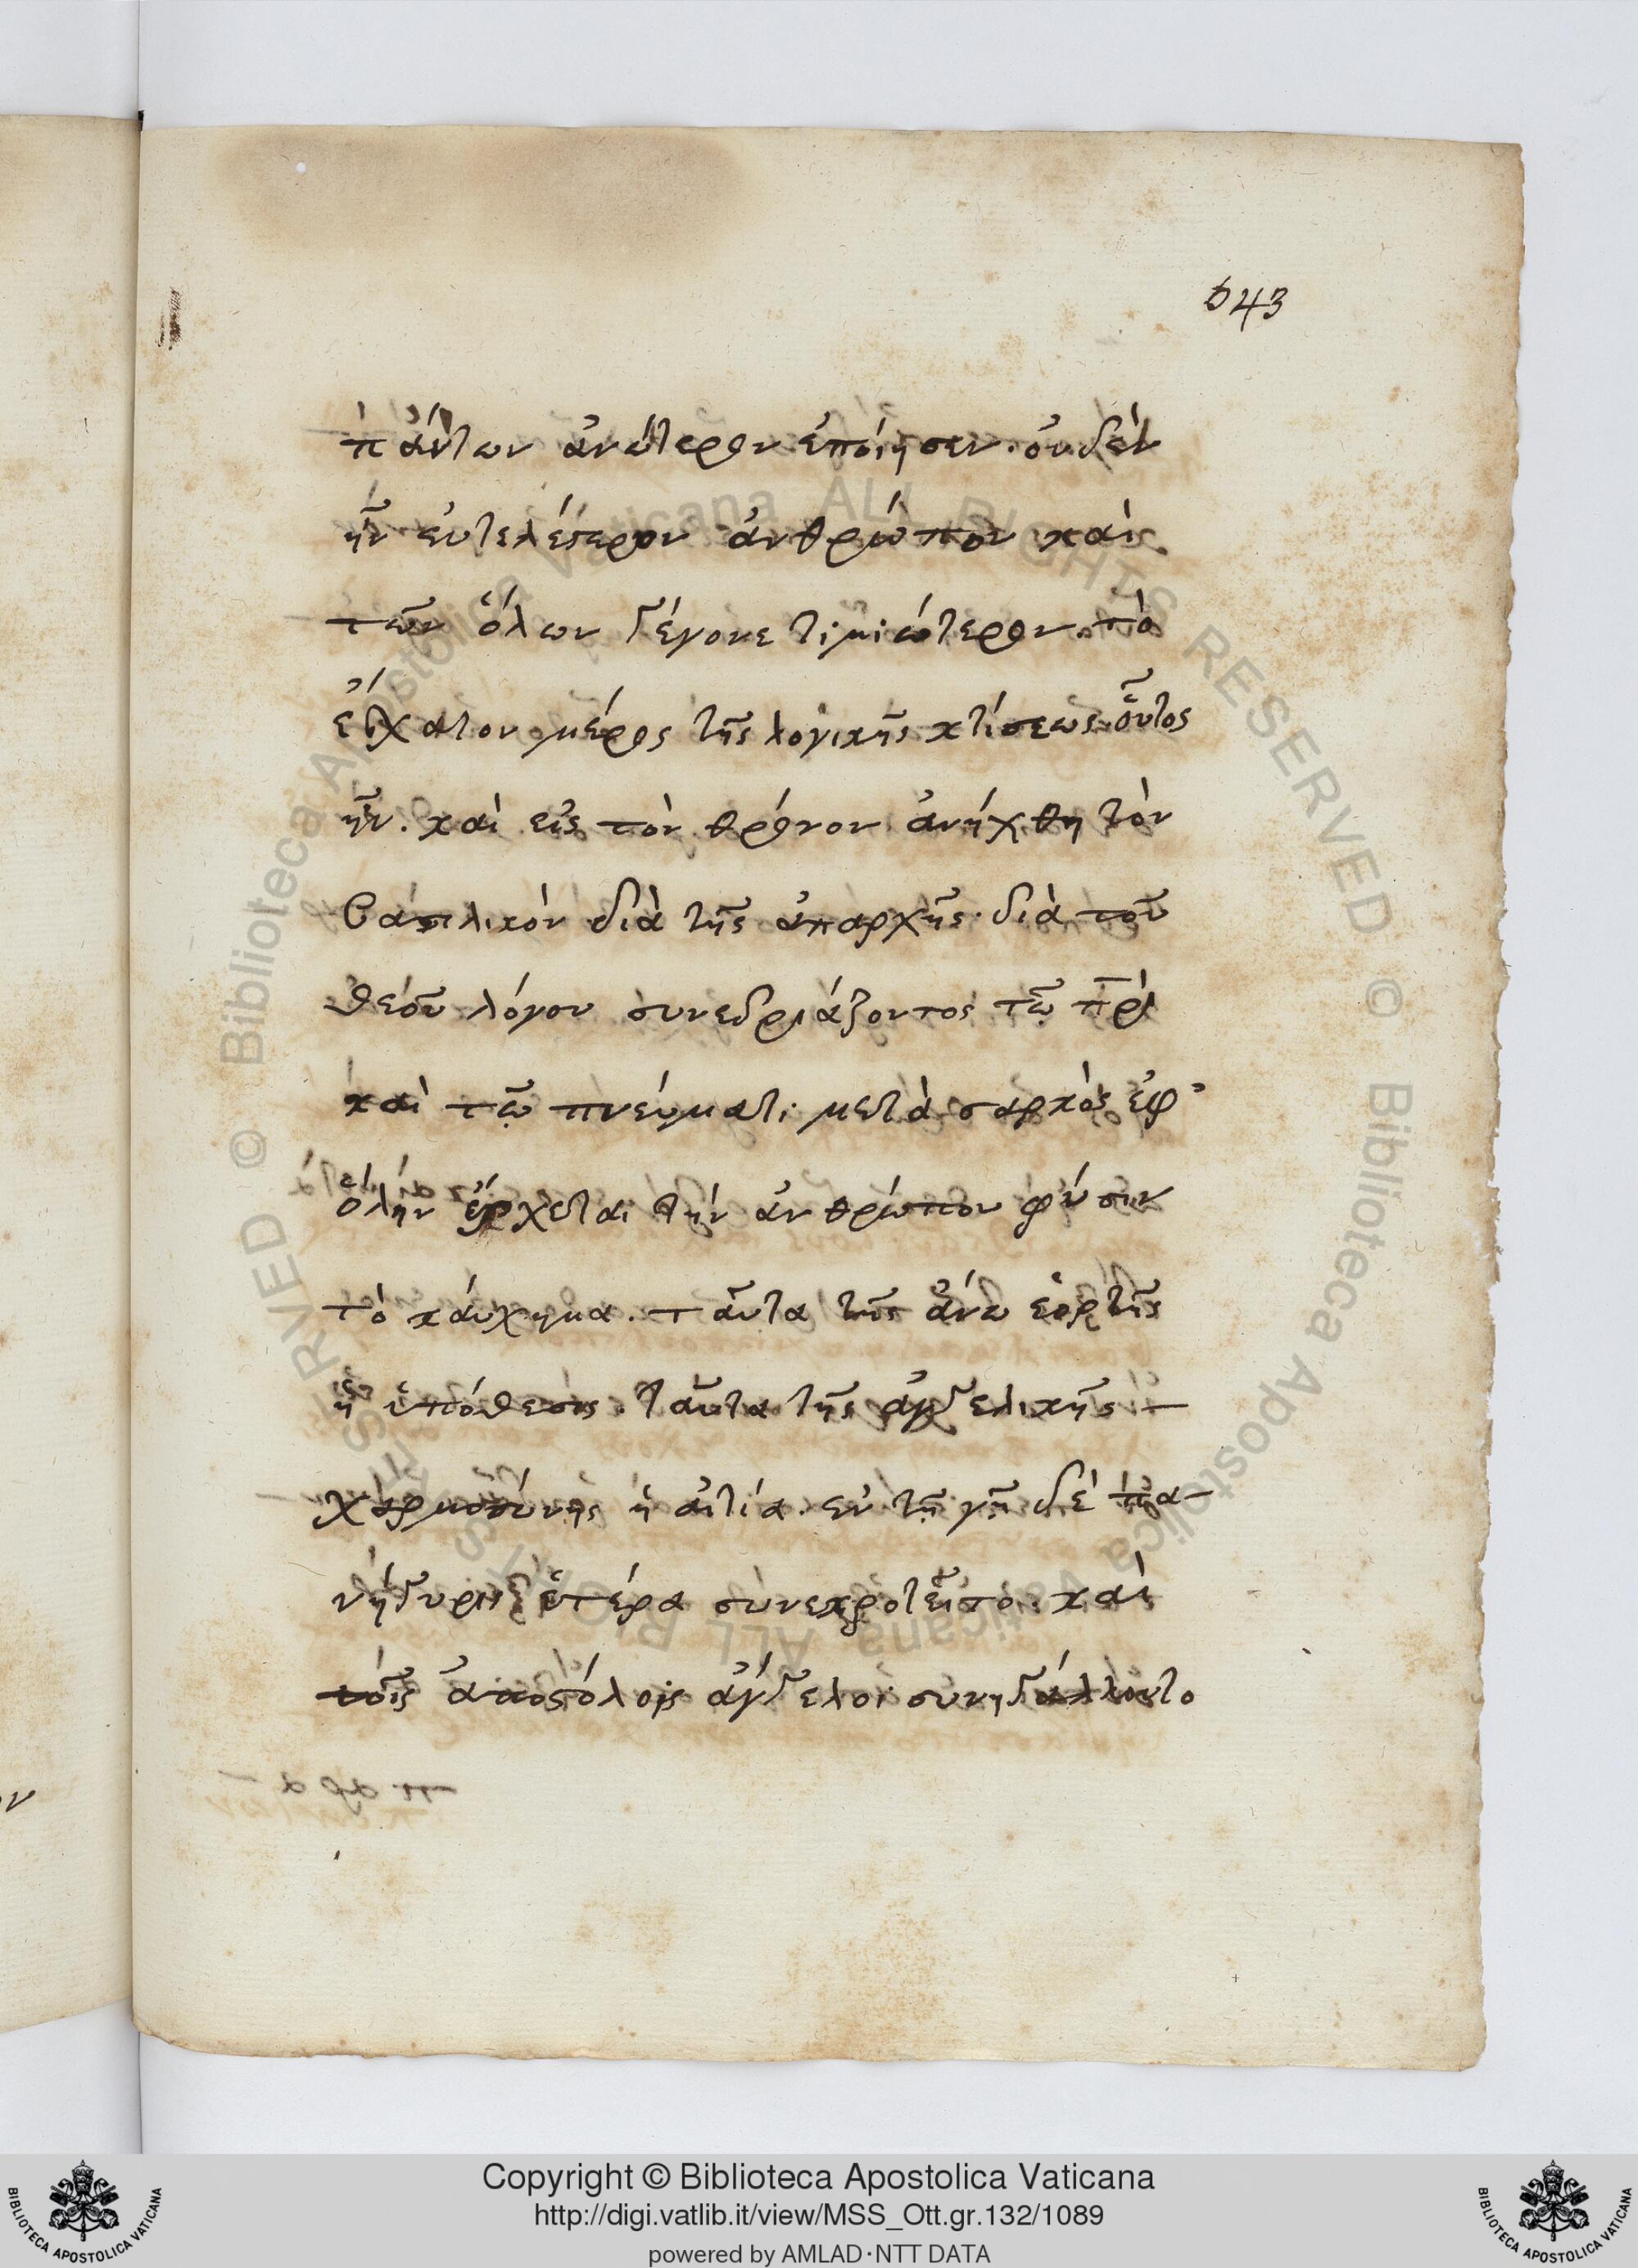 543
πάντων ἀνώτερον ἐποίησεν. οὐδὲν
ἦν εὐτελέστερον ἀνθρώπου καὶ
τῶν ὅλων γέγονε τιμιώτερον. τὸ
ἔσχατον μέρος τῆς λογικῆς κτίσεως οὗτος
ἦν. καὶ εἰς τὸν θρόνον ἀνήχθη τὸν
βασιλικὸν διὰ τῆς ἀπαρχῆς. διὰ τοῦ
θεοῦ λόγου συνεδριάζοντος τῷ πρὶ
καὶ τῷ πνεύματι μετὰ σαρκὸς ἐφ'
ὅλην ἔρχεται τὴν ἀνθρώπου φύσιν
τὸ καύχημα. ταῦτα τῆς ἄνω ἑορτῆς
ἡ ὑπόθεσις. ταῦτα τῆς ἀγγελικῆς
χαρμοσύνης ἡ αἰτία. ἐν τῇ γῇ δὲ πα-
νήγυρις ἑτέρα συνεκροτεῖτο. καὶ
τοῖς ἀποστόλοις ἄγγελοι συνηγάλλοντο
Copyright © Biblioteca Apostolica Vaticana
http://digi.vatlib.it/view/MSS_Ott.gr.132/1089
powered by AMLAD·NTT DATA
BIBLIOTECA APOSTOLICA VATICANA
BIBLIOTECA APOSTOLICA VATICANA
© Biblioteca Apostolica Vaticana ALL RIGHTS RESERVED © Biblioteca Apostolica Vaticana ALL RIGHTS RESERVED